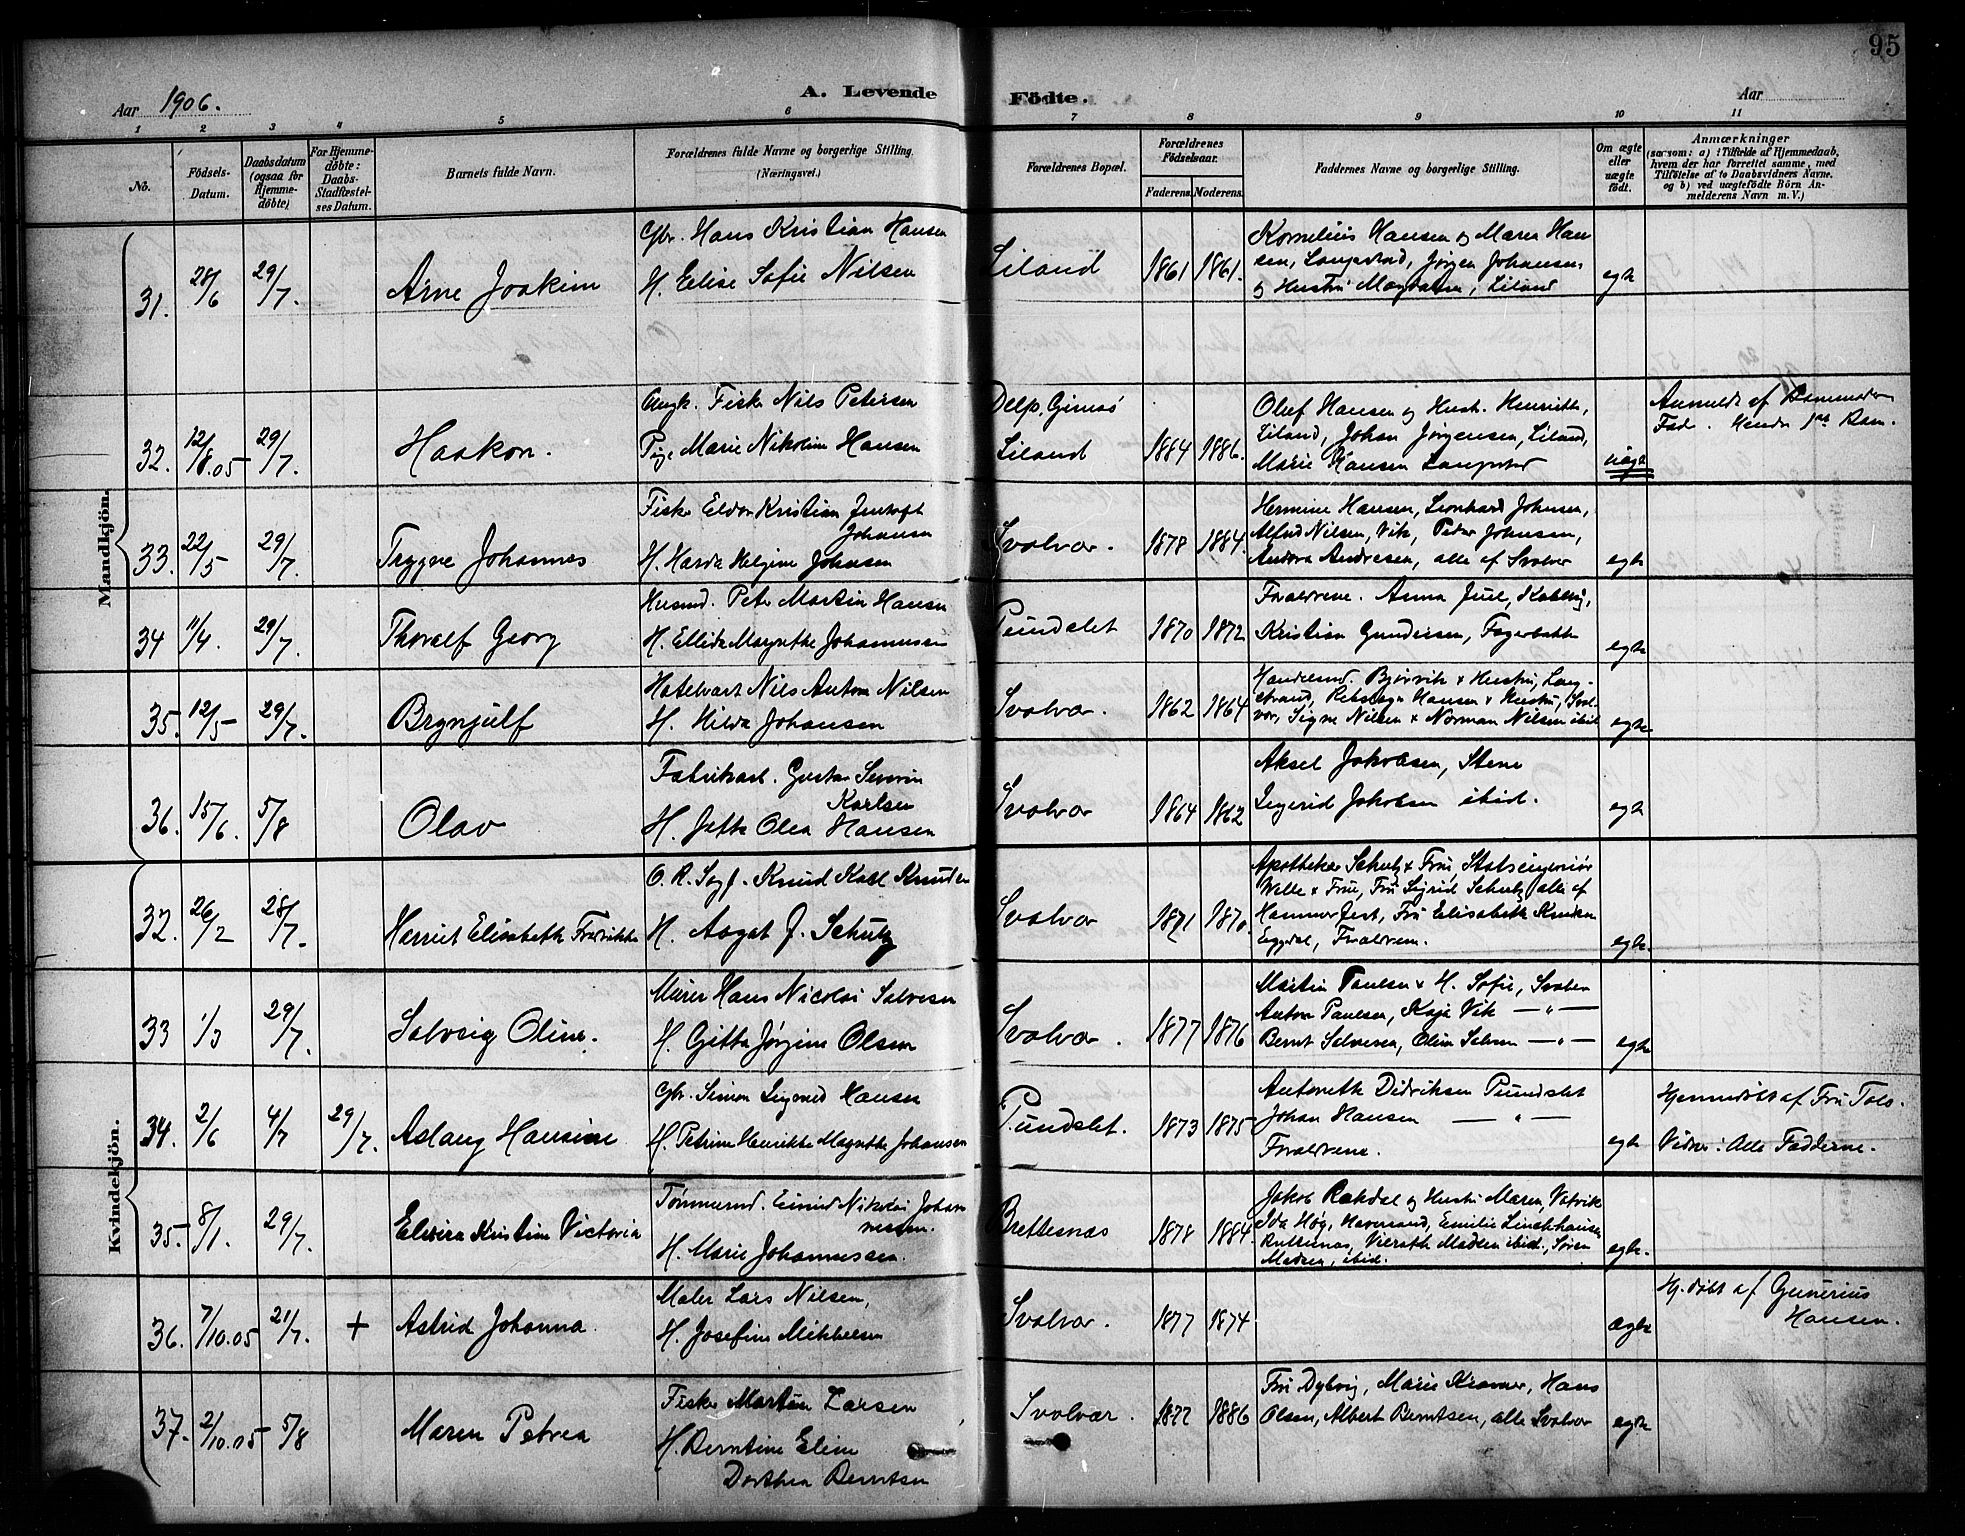 95
Aar 1906.
A. Levende Födte.
Aar
1 2 3 4 5 6 7 8 9 10 11
No.
Födsels-Datum.
Daabsdatum (ogsaa for Hjemme-döbte)
For Hjemme-döbte: Daabs-Stadfæstel-ses Datum.
Barnets fulde Navn.
Forældrenes fulde Navne og borgerlige Stilling. (Næringsvei.)
Forældrenes Bopæl.
Forældrenes Födselsaar.
Faderens. Moderens.
Faddernes Navne og borgerlige Stilling.
Om ægte eller uægte födt.
Anmærkninger
(saasom: a) i Tilfælde af Hjemmedaab,
hvem der har forrettet samme, med
Tilföielse af to Daabsvidners Navne.
og b) ved uægtefödte Börn An-
melderens Navn m. V.)
Mandkjön.
31. 28/6 29/7. Arne Joakim
Gbr. Hans Kristian Hansen
H. Elise Sofie Nilsen
Liland 1861 1861.
Kornelius Hansen og Maren Han
sen, Langstrand, Jørgen Johansen
og Hustru Magdalena, Liland
egte
32. 12/8.05 29/7. Haakon.
Ungk. Fisker Nils Petersen
Pige Marie Nikoline Hansen
Delp, Gimsö
Liland 1884 1886.
Oluf Hansen og Hust. Henrikke,
Liland, Johan Jørgensen, Liland,
Marie Hansen Langstrand
uægte
Anmeldt af Barnmoderen
Fad. Hendes 1ste Barn.
33. 22/5 29/7. Trygve Johannes
Fisker Eldor Kristian Jentoft
Johansen
H. Harda Helgine Johnsen
Svolvær. 1878 1884.
Hermine Hansen, Leonhard Johnsen,
Alfred Nilsen, Vik, Peder Johnsen,
Andora Andresen, alle af Svolvær
egte
34 11/4. 29/7. Thoralf Georg
Husmd. Peter Martin Hansen
H. Ellida Margrethe Johannessen
Pundslet 1870 1872
Forældrene. Anna Juul, Kabelvåg,
Kristian Gundersen, Fagerbakke
egte
35. 12/5 29/7. Brynjulf
Hotelvært Nils Anton Nilsen
H. Hilda Johansen
Svolvær. 1862 1864
Handelsmd. Bjørvik + Hustru, Lang-
strand, Rebslager Hansen + Hustru, Svol-
vær, Signe Nilsen + Norman Nilsen ibid
egte
36. 15/6. 5/8 Olav
Fabrikant. Gustav Severin
Karlsen
H. Jette Olea Hansen
Svolvær 1864 1862
Aksel Jakobsen, Stene
Sigrid Jakobsen ibid.
egte
Kvindekjön.
32. 26/2 28/7. Harriet Elisabeth Fredrikke
O. R. Sagf. Knud Karl Knudsen
H. Aagot J. Schulz
Svolvær 1871 1870.
Apotheker Schulz + Frue, Statsingeniør
Welle + Frue, Frk Sigrid Schulz, alle af
Hammerfest, Fru Elisabeth Knudsen
Eggedal, Forældrene.
egte.
33 1/3 29/7. Solveig Oline.
Murer Hans Nicolai Salvesen
H. Gitta Jørgine Olsen
Svolvær. 1877 1876
Martin Paulsen + H. Sofie, Svolvær
Anton Paulsen, Kaja Vik — " —
Bernt Salvesen, Oline Salvesen — " —
egte
34. 2/6 4/7 29/7. Aslaug Hansine
Gbr. Simon Sigvard Hansen
H. Petrine Henrikke Magrethe Johansen
Pundslet. 1873 1875
Antonette Didriksen Pundslet
Johan Hansen — " —
Forældrene.
egte
Hjemmedöbt af Fru Tolo.
Vidner: Alle Fadderne.
35. 8/1. 29/7. Elvira Kristine Victoria
Tømmermd. Eivind Nikolai Johan
nessen.
H. Marie Johannessen.
Brettesnæs 1878 1884
Jakob Rakdal og Hustru Maren, Vatvik
Ida Høg, Haversand, Emilie Linckhausen,
Brettesnæs, Vierath Madsen ibid., Søren
Madsen, ibid.
egte.
36. 7/10.05 21/7. + Astrid Johanna.
Maler Lars Nilsen,
H. Josefine Mikkelsen
Svolvær. 1877 1874
Ægte
Hj. döbt af Gunerius
Hansen.
37. 2/10.05 5/8 Maren Petrea
Fisker Martin Larsen
H. Berntine Eline
Dorthea Berntsen
Svolvær. 1877 1886
Fru Dybvig, Marie Kramer, Hans
Olsen, Albert Berntsen, alle Svolvær
egte